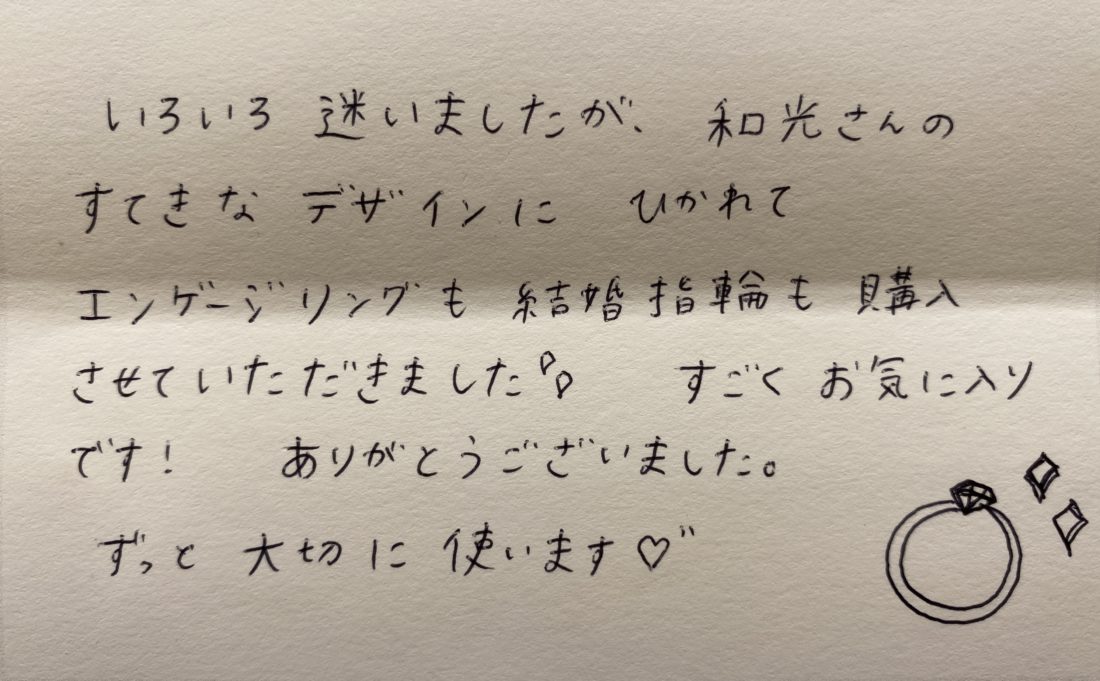 いろいろ 迷いましたが、 和光さんの
すてきな デザインに ひかれて
エンゲージリングも 結婚指輪も 購入
させていただきました すごく お気に入り
です! ありがとうございました。
ずっと 大切に 使います♡